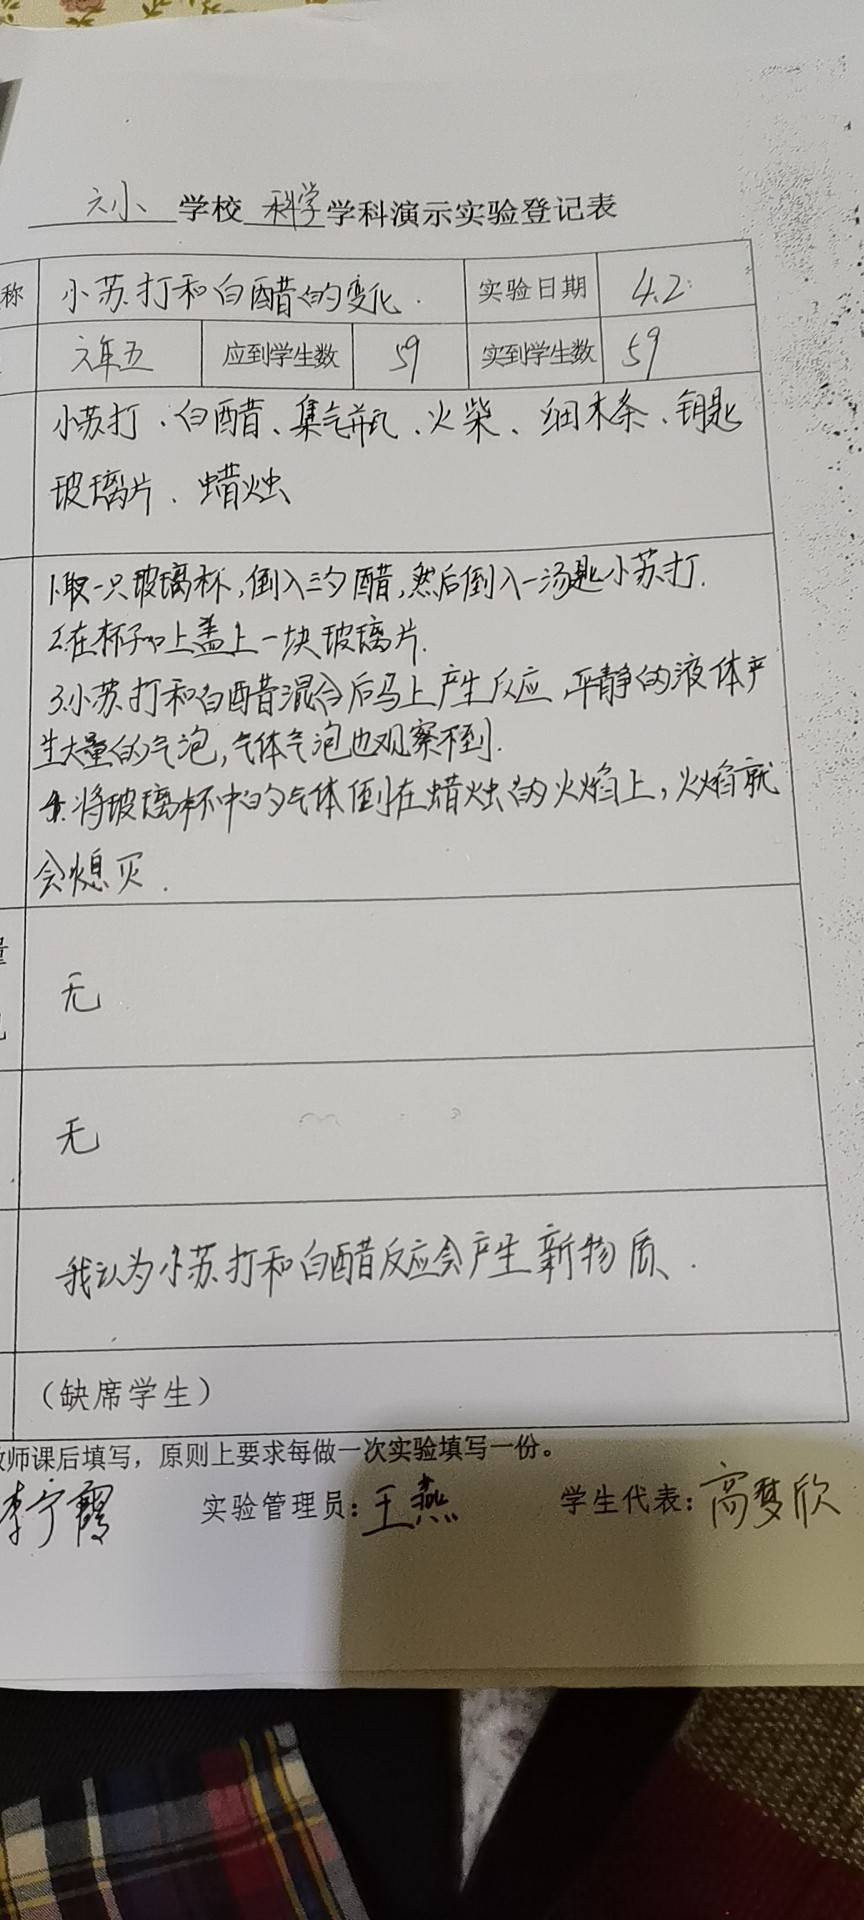 六小 学校 科学 学科演示实验登记表
称 小苏打和白醋的变化. 实验日期 4.2
六年五 应到学生数 59 实到学生数 59
小苏打、白醋、集气瓶、火柴、细木条、钥匙
玻璃片、蜡烛
1.取一只玻璃杯,倒入三勺醋,然后倒入一汤匙小苏打.
2.在杯子口上盖上一块玻璃片.
3.小苏打和白醋混合后马上产生反应,平静的液体产
生大量的气泡,气体气泡也观察不到.
4.将玻璃杯中的气体倒在蜡烛的火焰上,火焰就
会熄灭.
量
无
无
我认为小苏打和白醋反应会产生新物质.
（缺席学生）
教师课后填写，原则上要求每做一次实验填写一份。
李宁霞 实验管理员：王燕 学生代表：高梦欣